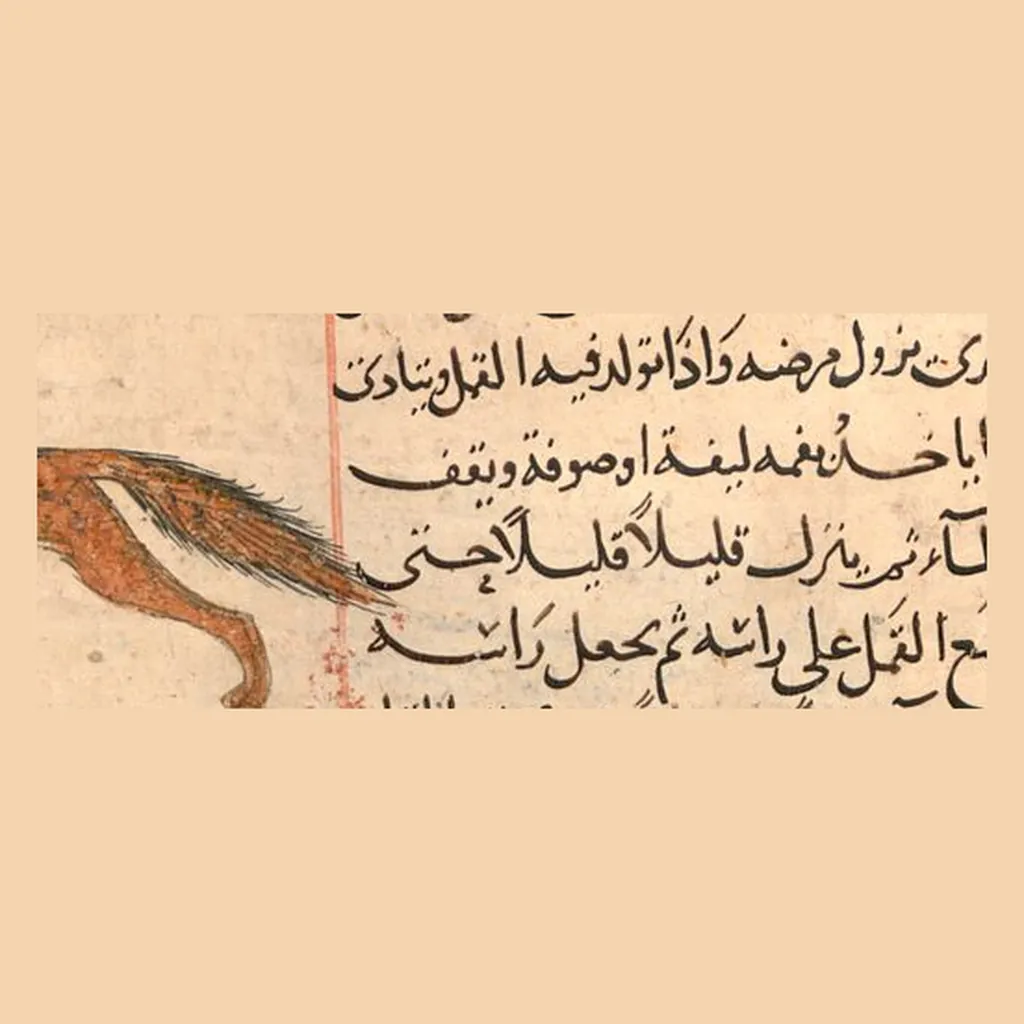 نزول مرضه وَاذَا تولد فيه ا القمل ويتادىٰ
يا خذ بفمه ليفة او صوفة ويقف
ثم ينزل قليلاً قليلاً حتى
ا القمل على راسه ثم يجعل رَاسه